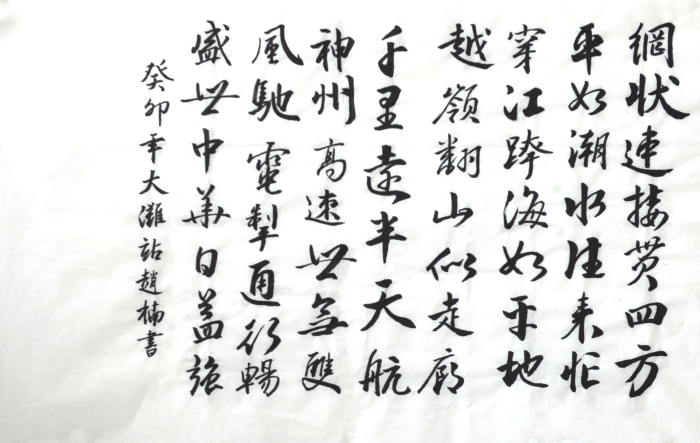 網狀連接貫四方
車如潮水往来忙
穿江跨海如平地
越嶺翻山似走廊
千里遠半天航
神州高速世無雙
風馳電掣通行暢
盛世中華日益強
癸卯年大灘站趙楠書